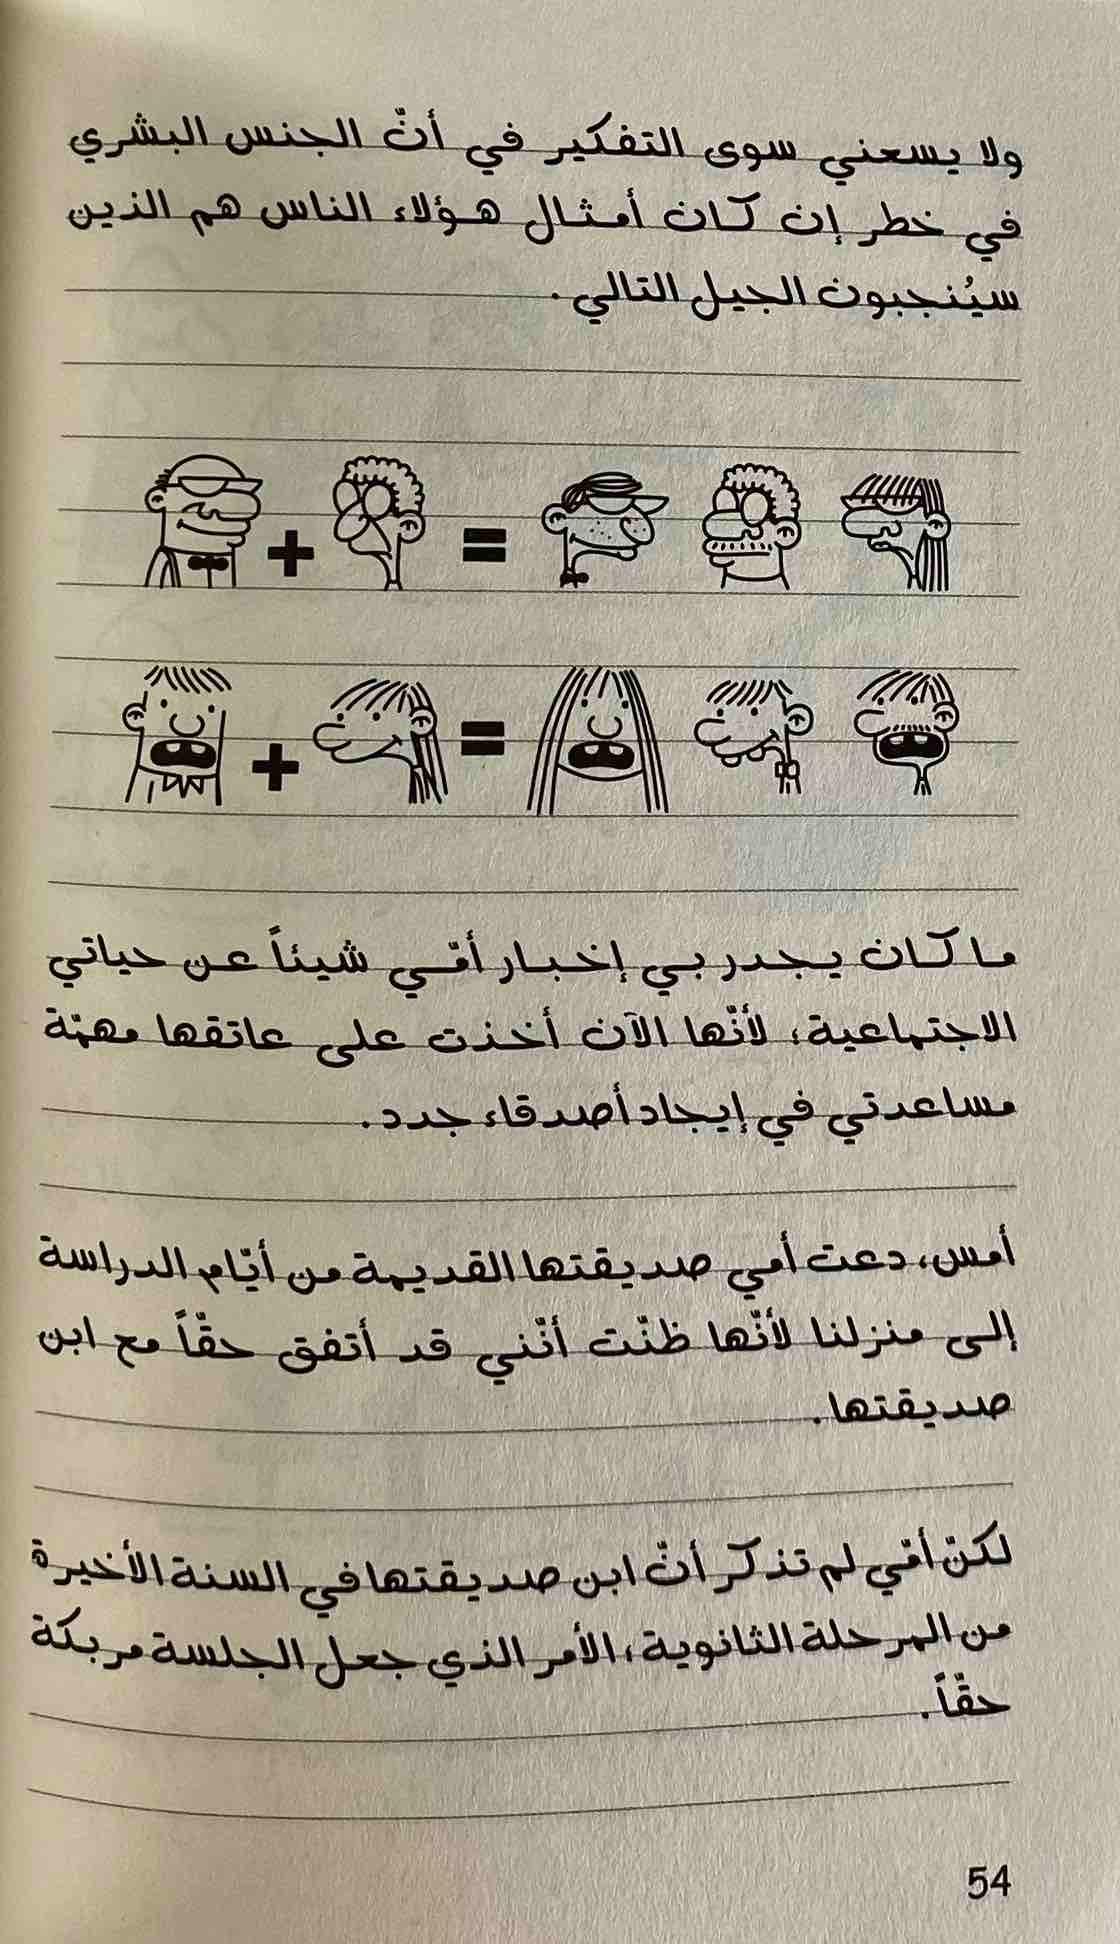 ولا يسعني سوى التفكير في أنّ الجنس البشري
في خطر إن كان أمثال هؤلاء الناس هم الذين
سيُنجبون الجيل التالي.
+ =
+ =
ما كان يجدر بي إخبار أمّي شيئاً عن حياتي
الاجتماعية، لأنّها الآن أخذت على عاتقها مهمّة
مساعدتي في إيجاد أصدقاء جدد.
أمس، دعت أمي صديقتها القديمة من أيّام الدراسة
إلى منزلنا لأنّها ظنّت أنّني قد أتفق حقّاً مع ابن
صديقتها.
لكنّ أمّي لم تذكر أنّ ابن صديقتها في السنة الأخيرة
من المرحلة الثانوية، الأمر الذي جعل الجلسة مربكة
حقّاً.
54